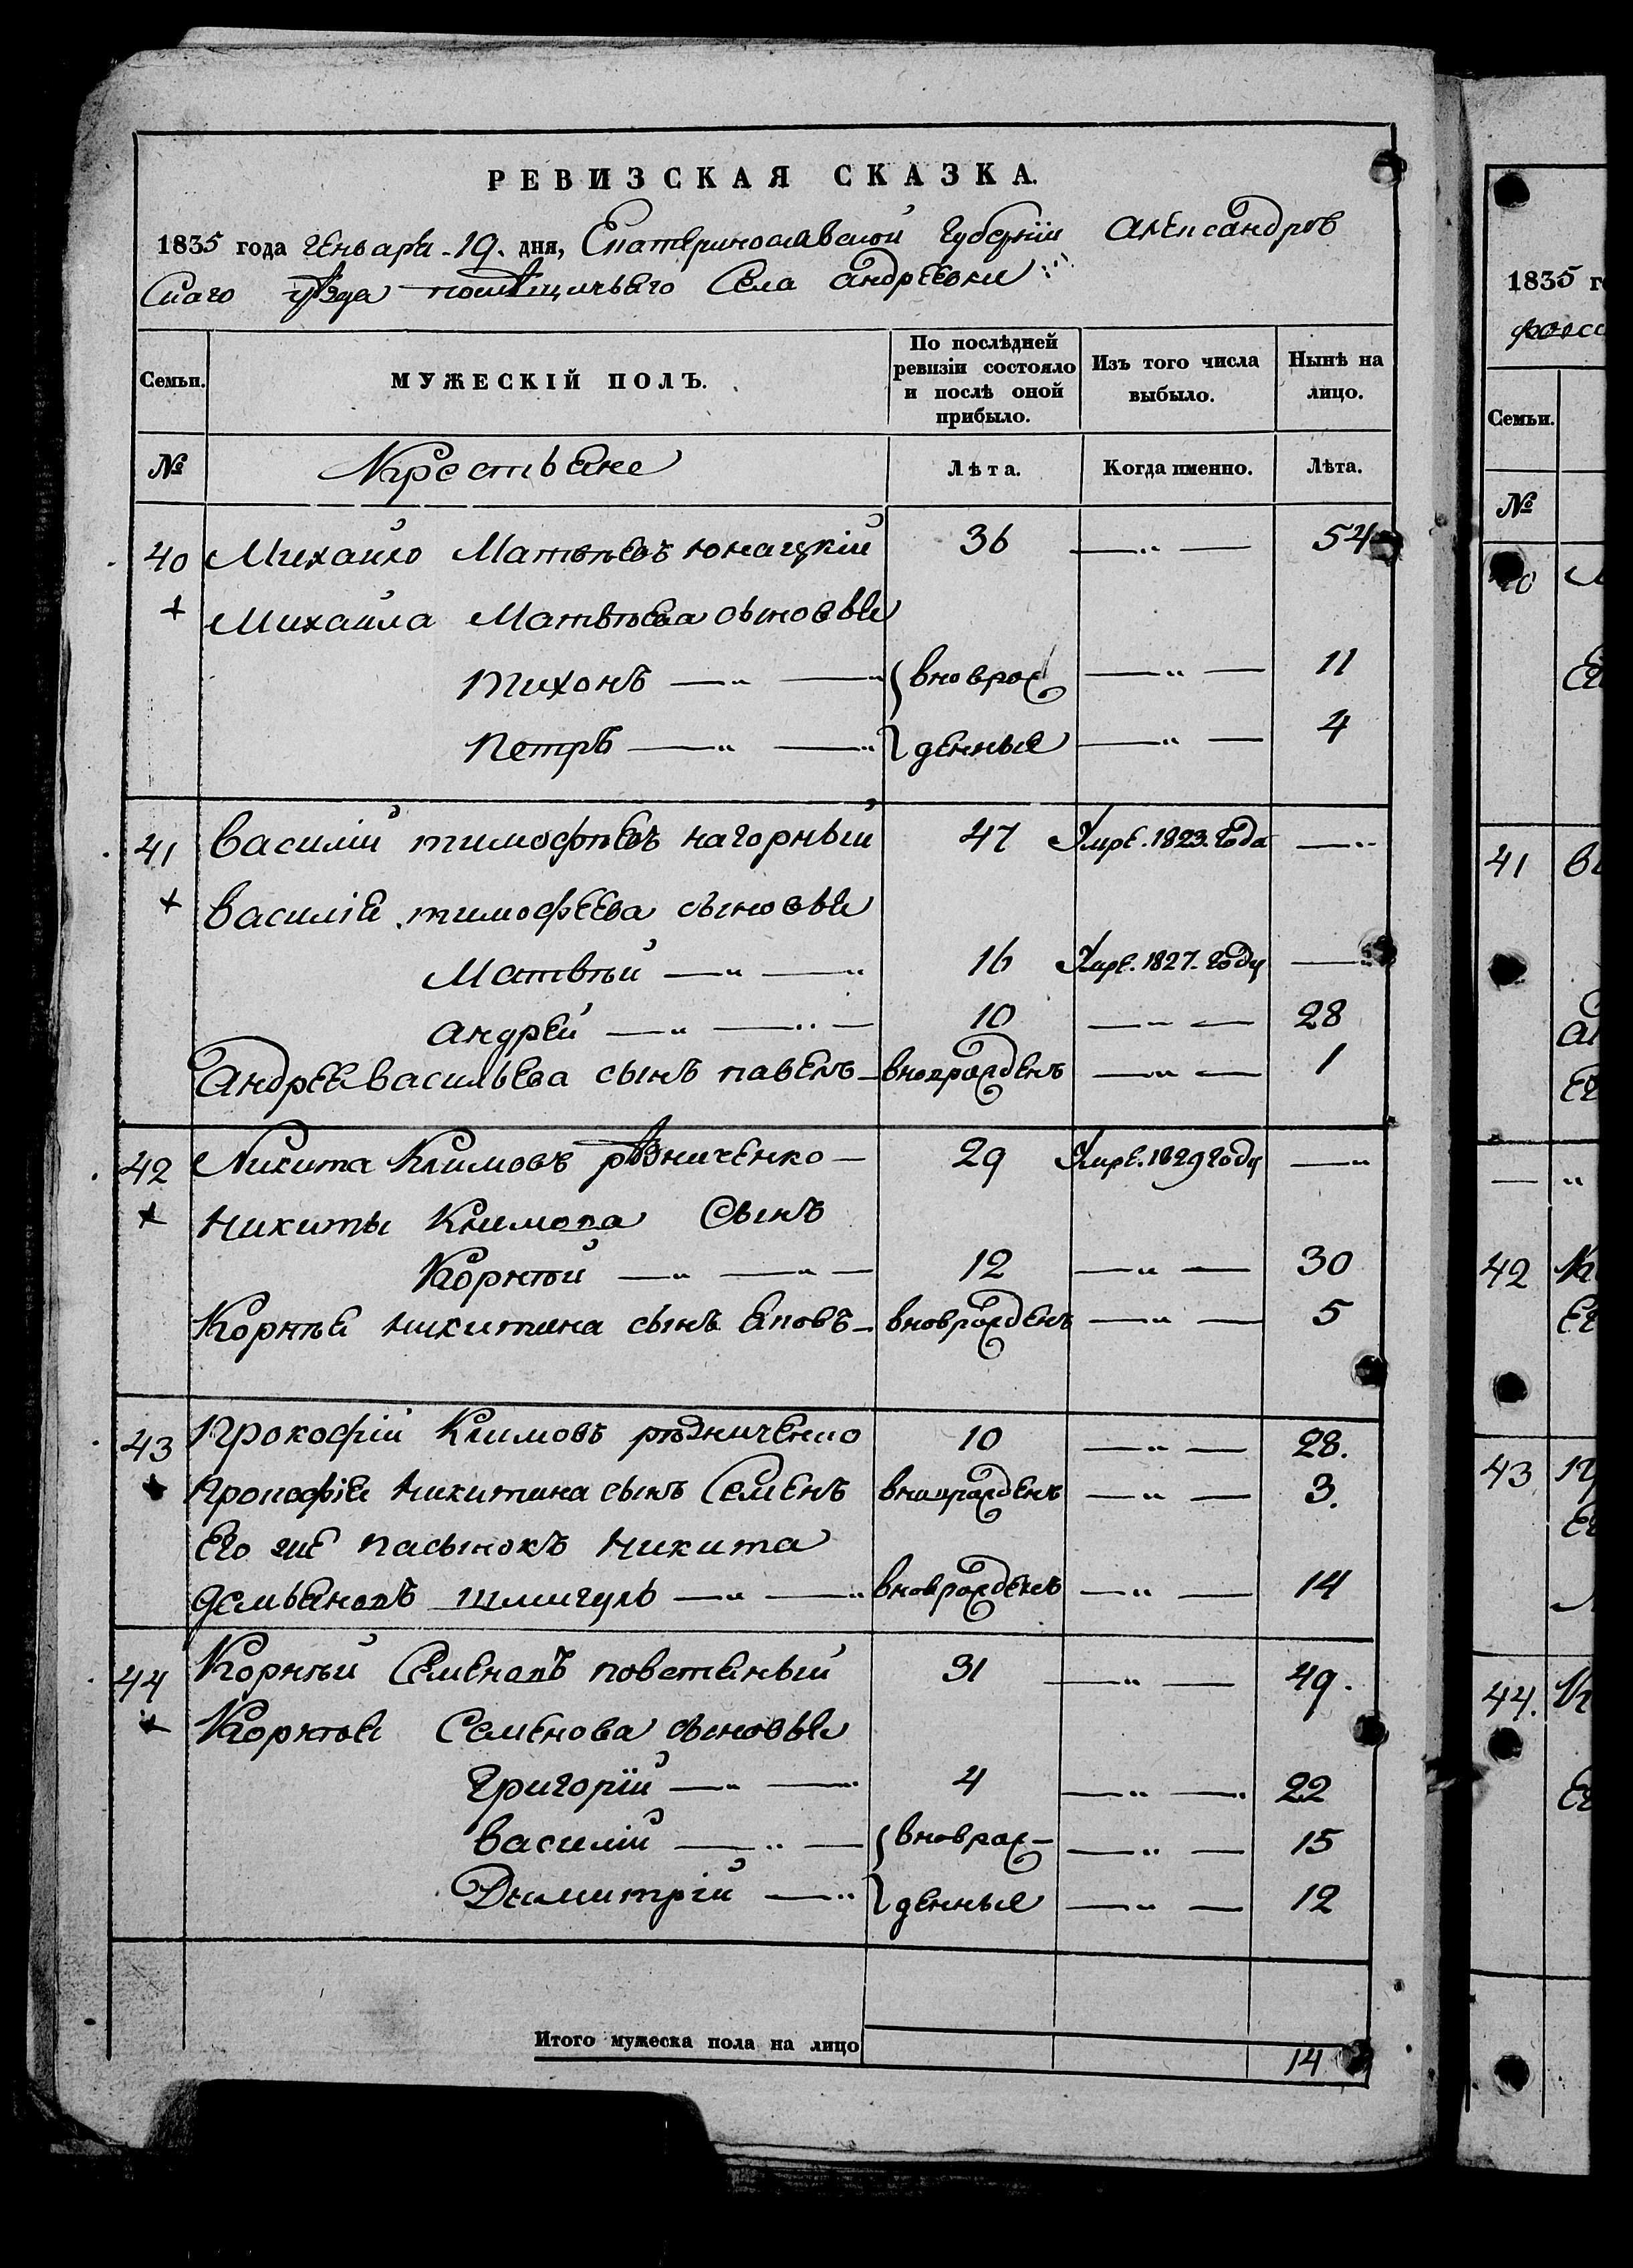 РЕВИЗСКАЯ СКАЗКА.
1835 года Генваря 19. дня, Екатеринославской Губернiи Александров
Скаго уѣзда помѣщичьяго Села Андреевки
Семьи.
МУЖЕСКIЙ ПОЛЪ.
По послѣдней
ревизiи состояло
и послѣ оной
прибыло.
Изъ того числа
выбыло.
Нынѣ на
лицо.
№ Крестьяне Лѣта. Когда именно. Лѣта.
40 Михайло Матвѣевъ Юнацкiй 36 —„— 54
+ Михайла Матвѣева сыновья
Тихонъ —„— вноврож —„— 11
Петръ —„— денные —„— 4
41 Василiй Тимофѣевъ Нагорный 47 Умре. 1823. года —„
+ Василiя Тимофеева сыновья
Матвѣй —„— 16 Умре. 1827. году —„
Андрей —„— 10 —„— 28
Андрея Васильева сынъ Павелъ — вноврожденъ —„— 1
42 Никита Климовъ Рѣзниченко — 29 Умре. 1829 году —„
+ Никиты Климова Сынъ
Корнѣй —„— 12 —„— 30
Корнѣя Никитина сынъ Яковъ — вноврожденъ —„— 5
43 Прокофiй Климовъ Рѣзниченко 10 —„— 28.
+ Прокофiя Никитина сынъ Семенъ вноврожденъ —„— 3.
Его же пасынокъ Никита
Демьяновъ Шмигуль —„— вноврожденъ —„— 14
44 Корнѣй Семеновъ Повстяный 31 —„— 49.
+ Корнѣя Семенова сыновья
Григорiй —„— 4 —„— 22
Василiй —„— вноврож- —„— 15
Димитрiй —„ денные —„— 12
Итого мужеска пола на лицо 14
1835
Семьи.
№
41
42
43
44.